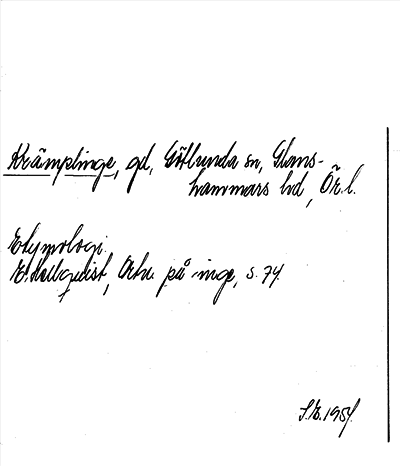 Krämplinge, gd, Götlunda sn, Glans-
hammars hd, Ör. l.
Etymologi.
E. Hellquist, Ortn. på inge, s. 74.
S.E. 1954.